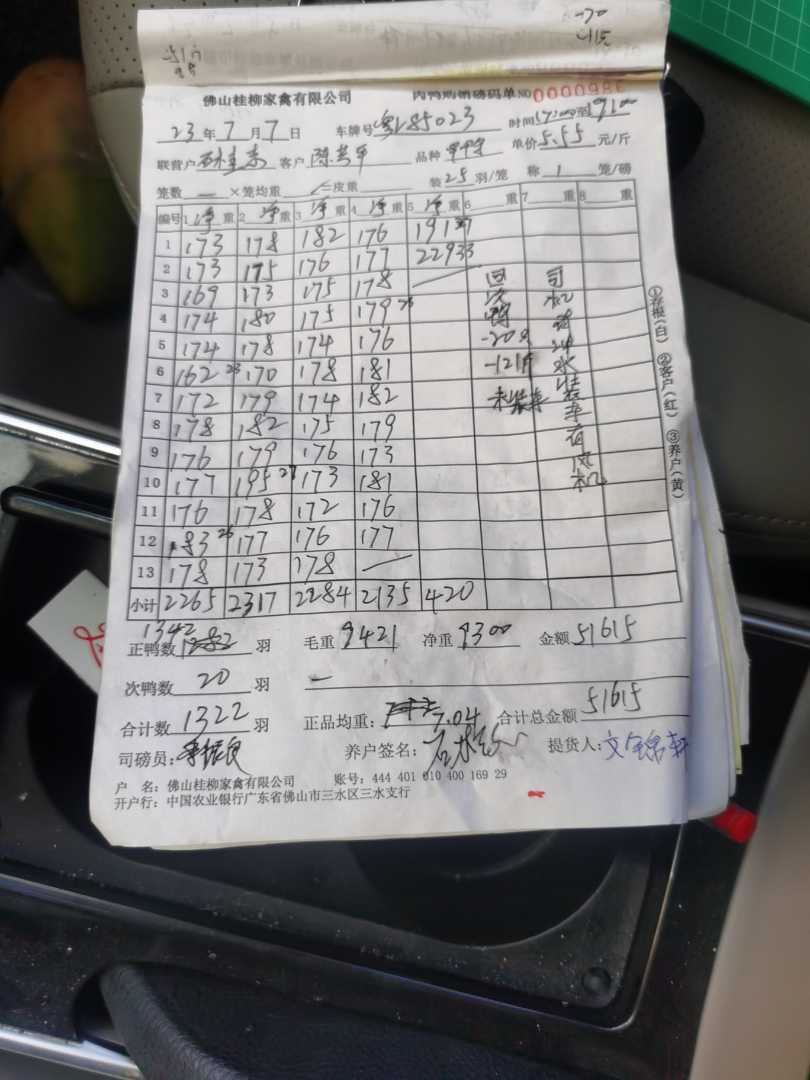 -20
佛山桂柳家禽有限公司 肉鸭购销磅码单 NO 0000986
23年7月7日 车牌号 粤L85023 时间 17:00至19:00
联营户 客户 陈 品种 单价 5.55 元/斤
笼数 — ×笼均重 =皮重 装 25 羽/笼 称 1 笼/磅
编号 1 净重 2 净重 3 净重 4 净重 5 净重 6 重 7 重 8 重
1 173 178 182 176 191 37
2 173 175 176 177 229 33
3 169 173 175 178
4 174 180 175 179 26
5 174 178 174 176
6 162 23 170 178 181
7 172 179 174 182
8 178 182 175 179
9 176 179 176 173
10 177 195 27 173 181
11 176 178 172 176
12 183 26 177 176 177
13 178 173 178 —
小计 2265 2317 2284 2135 420
回
次
鸭
-20只
-12
未装车
司
机
冲
水
装
车
有
风
机
①存根(白) ②客户(红) ③养户(黄)
正鸭数 1342 羽 毛重 9421 净重 9300 金额 51615
次鸭数 20 羽 —
合计数 1322 羽 正品均重: 7.04 合计总金额 51615
司磅员: 养户签名: 石 提货人: 文
户 名: 佛山桂柳家禽有限公司 账号: 444 401 010 400 169 29
开户行: 中国农业银行广东省佛山市三水区三水支行